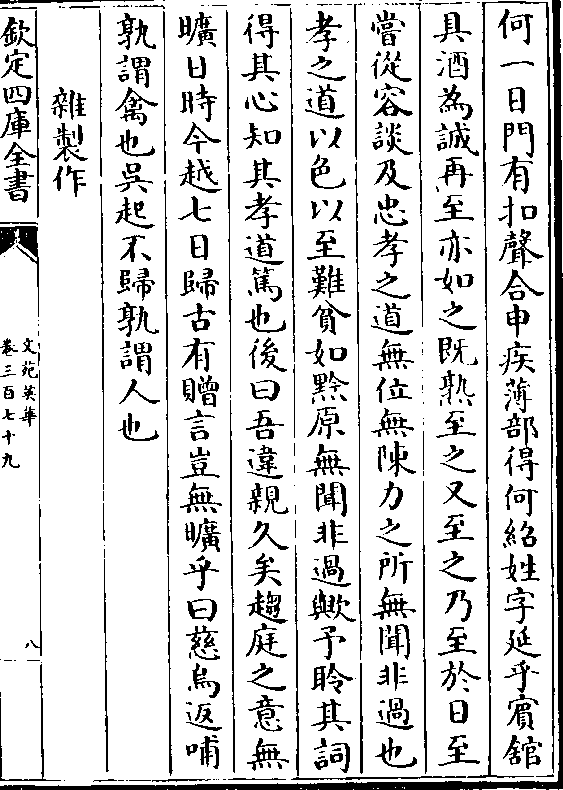 何一日門有扣聲合申疾薄部得何紹姓字延乎賔舘
具酒為誠再至亦如之既熟至之又至之乃至於日至
嘗從容談及忠孝之道無位無陳力之所無聞非過也
孝之道以色以至難貧如黔原無聞非過歟予聆其詞
得其心知其孝道篤也後曰吾違親久矣趨庭之意無
曠日時今越七日歸古有贈言豈無曠乎曰慈烏返哺
孰謂禽也吳起不歸孰謂人也
雜製作
欽定四庫全書
文苑英華
卷三百七十九
八